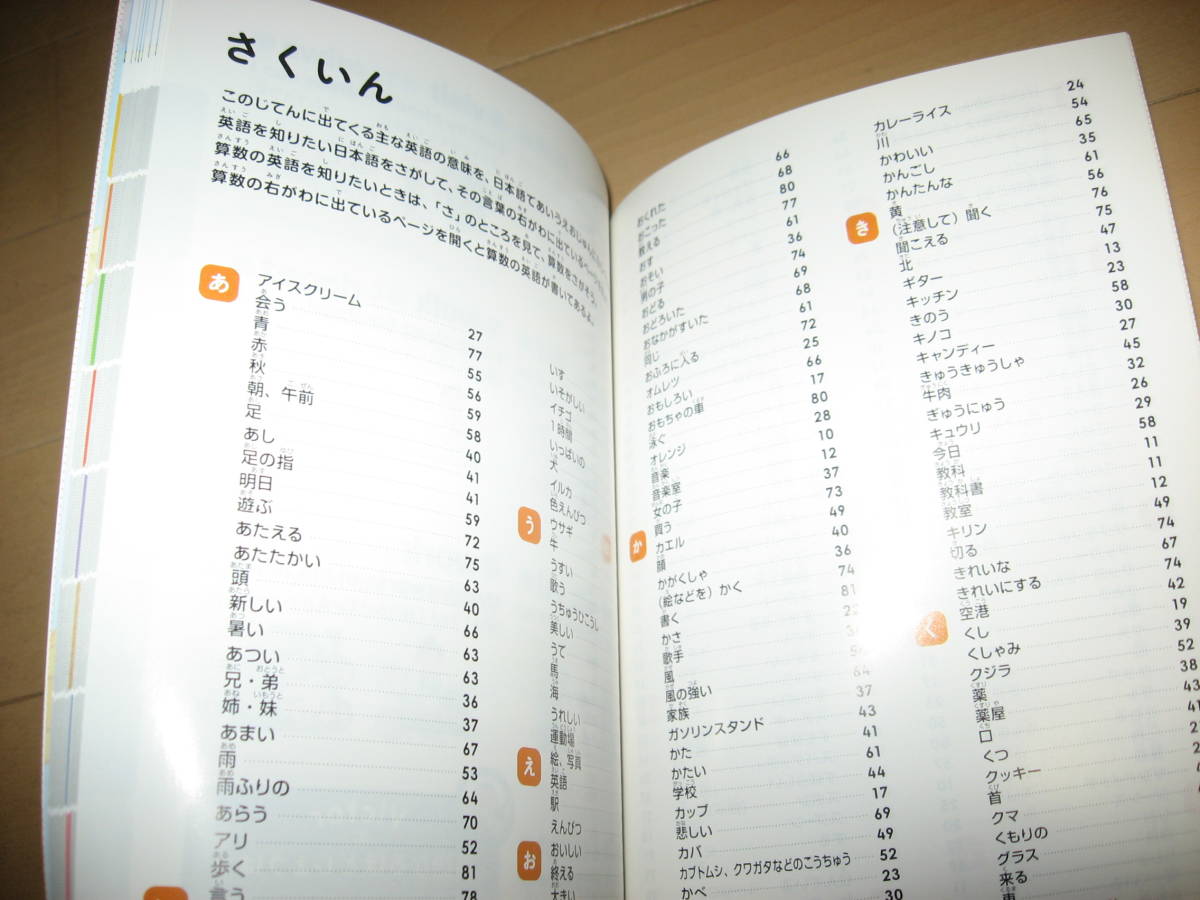 さくいん
このじてんに出てくる主な英語の意味を、日本語であいうえおじゅんに
英語を知りたい日本語をさがして、その言葉の右がわに出ているページ
算数の英語を知りたいときは、「さ」のところを見て、算数をさがそう。
算数の右がわに出ているページを開くと算数の英語が書いてあるよ。
あ
アイスクリーム 27
会う 77
青 55
赤 56
秋 59
朝、午前 58
足 40
あし 41
足の指 41
明日 59
遊ぶ 72
あたえる 75
あたたかい 63
頭 40
新しい 66
暑い 63
あつい 63
兄・弟 36
姉・妹 37
あまい 67
雨 53
雨ふりの 64
あらう 70
アリ 52
歩く 81
言う 78
いす
いそがしい
イチゴ
1時間
いっぱいの
犬
イルカ
色えんぴつ
う
ウサギ
牛
うすい
歌う
うちゅうひこうし
美しい
うで
馬
海
うれしい
運動場
え
絵、写真
英語
駅
えんぴつ
お
おいしい
終える
大きい
おくれた 66
おこった 68
教える 80
おす 77
おそい 61
男の子 36
おどる 74
おどろいた 69
おなかがすいた 68
同じ 61
おふろに入る 72
オムレツ 25
おもしろい 66
おもちゃの車 17
泳ぐ 80
オレンジ 28
音楽 10
音楽室 12
女の子 37
か
買う 73
カエル 49
顔 40
かがくしゃ 36
(絵などを)かく 74
書く 81
かさ 22
歌手
風
風の強い 64
家族 37
ガソリンスタンド 43
かた 41
かたい 61
学校 44
カップ 17
悲しい 69
カバ 49
カブトムシ、クワガタなどのこうちゅう 52
かべ 23
30
カレーライス 24
川 54
かわいい 65
かんごし 35
かんたんな 61
き
黄 56
(注意して)聞く 76
聞こえる 75
北 47
ギター 13
キッチン 23
きのう 58
キノコ 30
キャンディー 27
きゅうきゅうしゃ 45
牛肉 32
ぎゅうにゅう 26
キュウリ 29
今日 58
教科 11
教科書 11
教室 12
キリン 49
切る 74
きれいな 67
きれいにする 74
く
空港 42
くし 19
くしゃみ 39
クジラ 52
薬 38
薬屋 43
口 41
くつ
クッキー
首
クマ
くもりの
グラス
来る
車